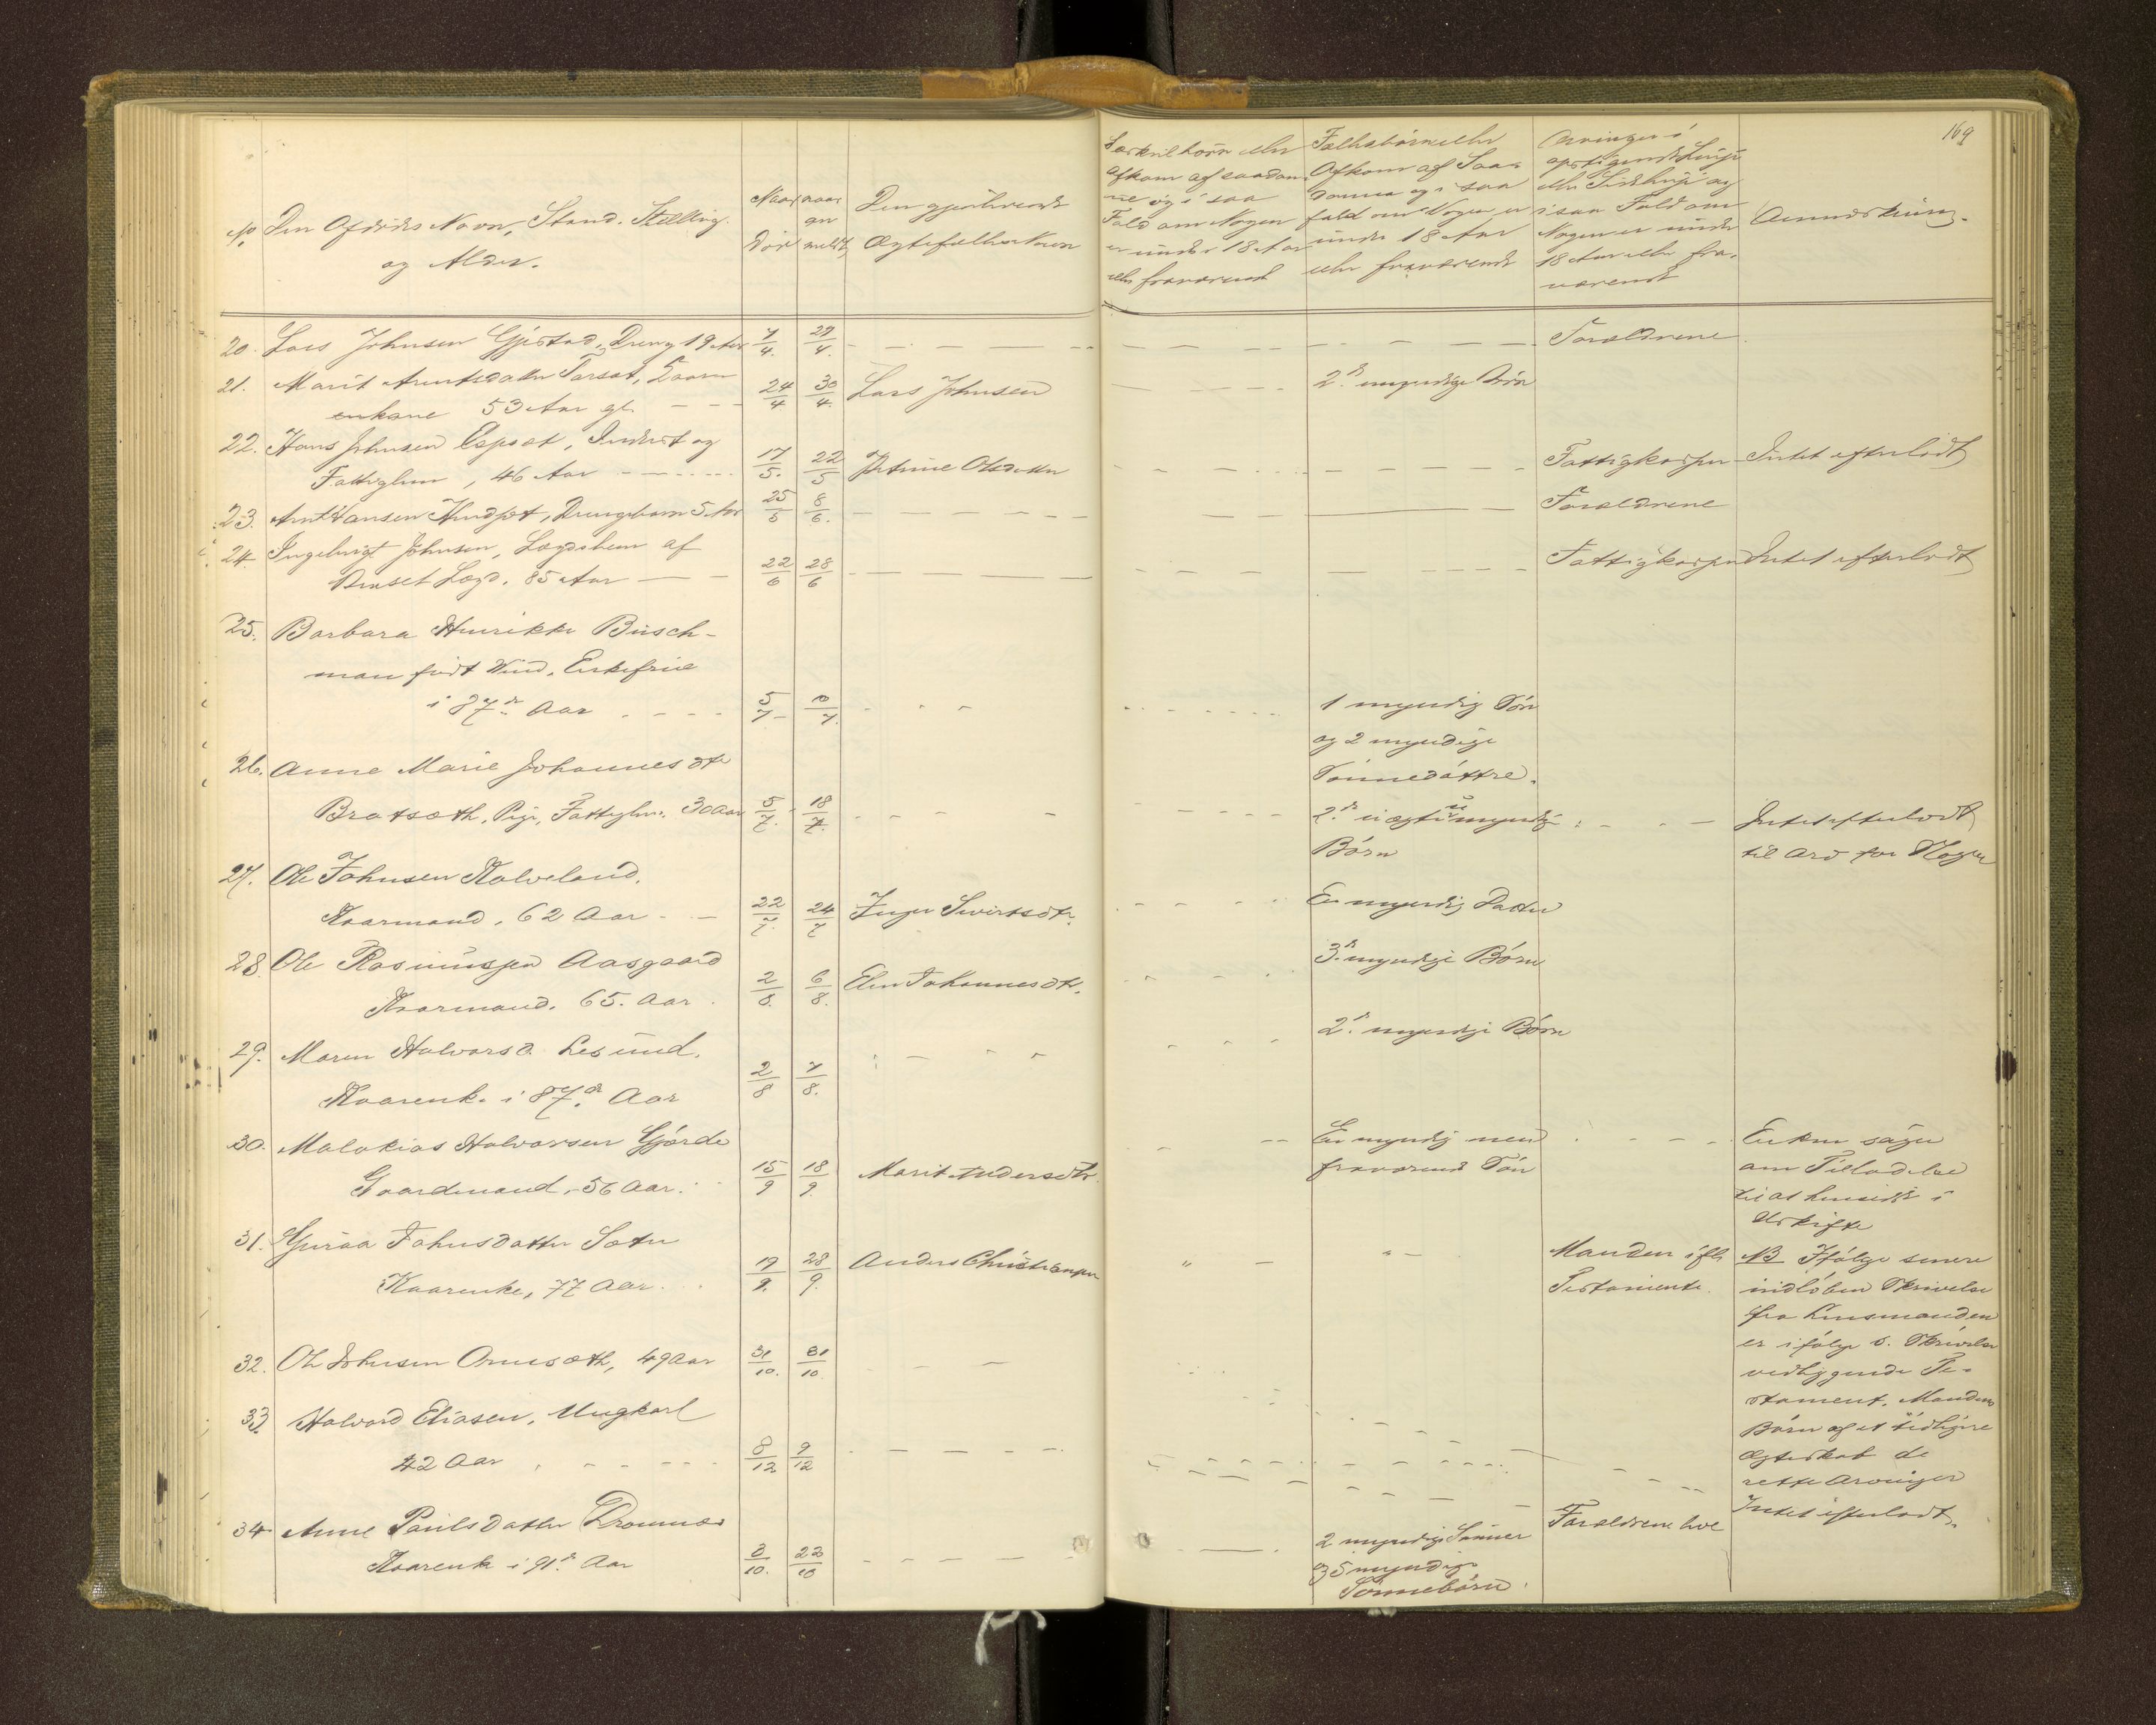 169
No Den Afdødes Navn, Stand. Stilling
og Alder.
Naar død
naar an meldt
Den gjenlevende
Ægtefælles Navn
Særkuldbørn eller
Afkom af saadan-
ne og i saa
Fald om Nogen
er under 18 Aar
eller fraværende
Fællesbørn eller
Afkom af Saa-
danne og i saa
fald om Nogen er
under 18 Aar
eller fraværende
Arvinger i
opstigende Linje
eller Sidelinje og
i saa Fald om
Nogen er under
18 Aar eller fra-
værende
Anmærkning.
20. Lars Johnsen Gjerstad, Dreng 19 Aar 7/4. 29/4. Forældrene
21. Marit Arntsdatter
enkone 53 Aar gl. 24/4 30/4. Lars Johnsen 2de myndige Børn
22. Hans Johnsen Espset, Inderst og
Fattiglem, 46 Aar 17/5. 22/5 Petrine Olsdatter Fattigkassen Intet efterladt
23. Arnt Hansen, Drengebarn 5 Aar 25/5 8/6. Forældrene
24. Ingebrigt Johnsen, Lægdslem af
Lægd. 85 Aar 22/6 28/6 Fattigkassen Intet efterladt
25. Barbara Henrikke Busch-
man født Wind. Enkefrue
i 87de Aar 5/7 10/7. 1 myndig Søn
og 2 myndige
Sønnedøttre.
26. Anne Marie Johannesdtr
Bratsæth, Pige, Fattiglem. 30 Aar 5/7. 18/7. 2de uægte umyndige Intet efterladt
Børn til Arv for Nogen
27. Ole Johnsen Kalveland.
Kaarmand, 62 Aar 22/7. 24/7 Inger Sivertsdtr. En myndig Datter
28. Ole Rasmussen Aasgaard 3de myndige Børn
Kaarmand. 65. Aar 2/8. 6/8. Elen Johannesdtr.
29. Maren Halvorsd. Lesund. 2de myndige Børn
Kaarenk. i 87de Aar 2/8 7/8.
30. Malakias Halvorsen Gjørde En myndig men Enken søger
Gaardmand, 56 Aar. 15/9 18/9. Marit Andersdtr. fraværende Søn om Tilladelse
til at hensidde i
Uskifte
31. Guroa Johnsdatter Sæter Manden ifl. NB Ifølge senere
Kaarenke, 77 Aar. 19/9. 28/9. Anders Christensen Testamente. indløben Skrivelse
fra Lensmanden
er ifølge s. Skrivelse
vedliggende Te-
stament, Mandens
Børn af et tidligere
Ægteskab de
rette Arvinger
32. Ole Johnsen, 49 Aar 31/10. 31/10
33. Halvard Eliasen, Ungkarl
42 Aar 8/12 9/12 Forældrene leve Intet efterladt.
34 Anne Paulsdatter Dromnes 2 myndige Sønner
Kaarenk i 91de Aar 8/10. 23/10 og 5 myndige
Sønnebørn.